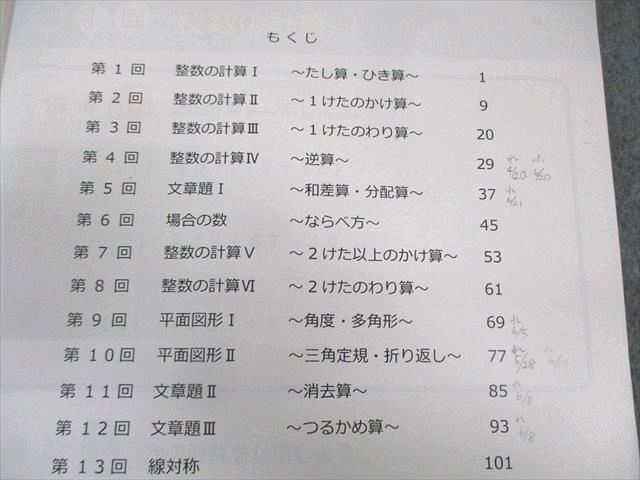 もくじ
第1回 整数の計算Ⅰ ～たし算・ひき算～ 1
第2回 整数の計算Ⅱ ～1けたのかけ算～ 9
第3回 整数の計算Ⅲ ～1けたのわり算～ 20
第4回 整数の計算Ⅳ ～逆算～ 29 れ 4/20 ふ 6/20
第5回 文章題Ⅰ ～和差算・分配算～ 37 れ 6/21
第6回 場合の数 ～ならべ方～ 45
第7回 整数の計算Ⅴ ～2けた以上のかけ算～ 53
第8回 整数の計算Ⅵ ～2けたのわり算～ 61
第9回 平面図形Ⅰ ～角度・多角形～ 69 れ 6/5
第10回 平面図形Ⅱ ～三角定規・折り返し～ 77 れ 5/28
第11回 文章題Ⅱ ～消去算～ 85 れ 6/8
第12回 文章題Ⅲ ～つるかめ算～ 93 れ 6/8
第13回 線対称 101